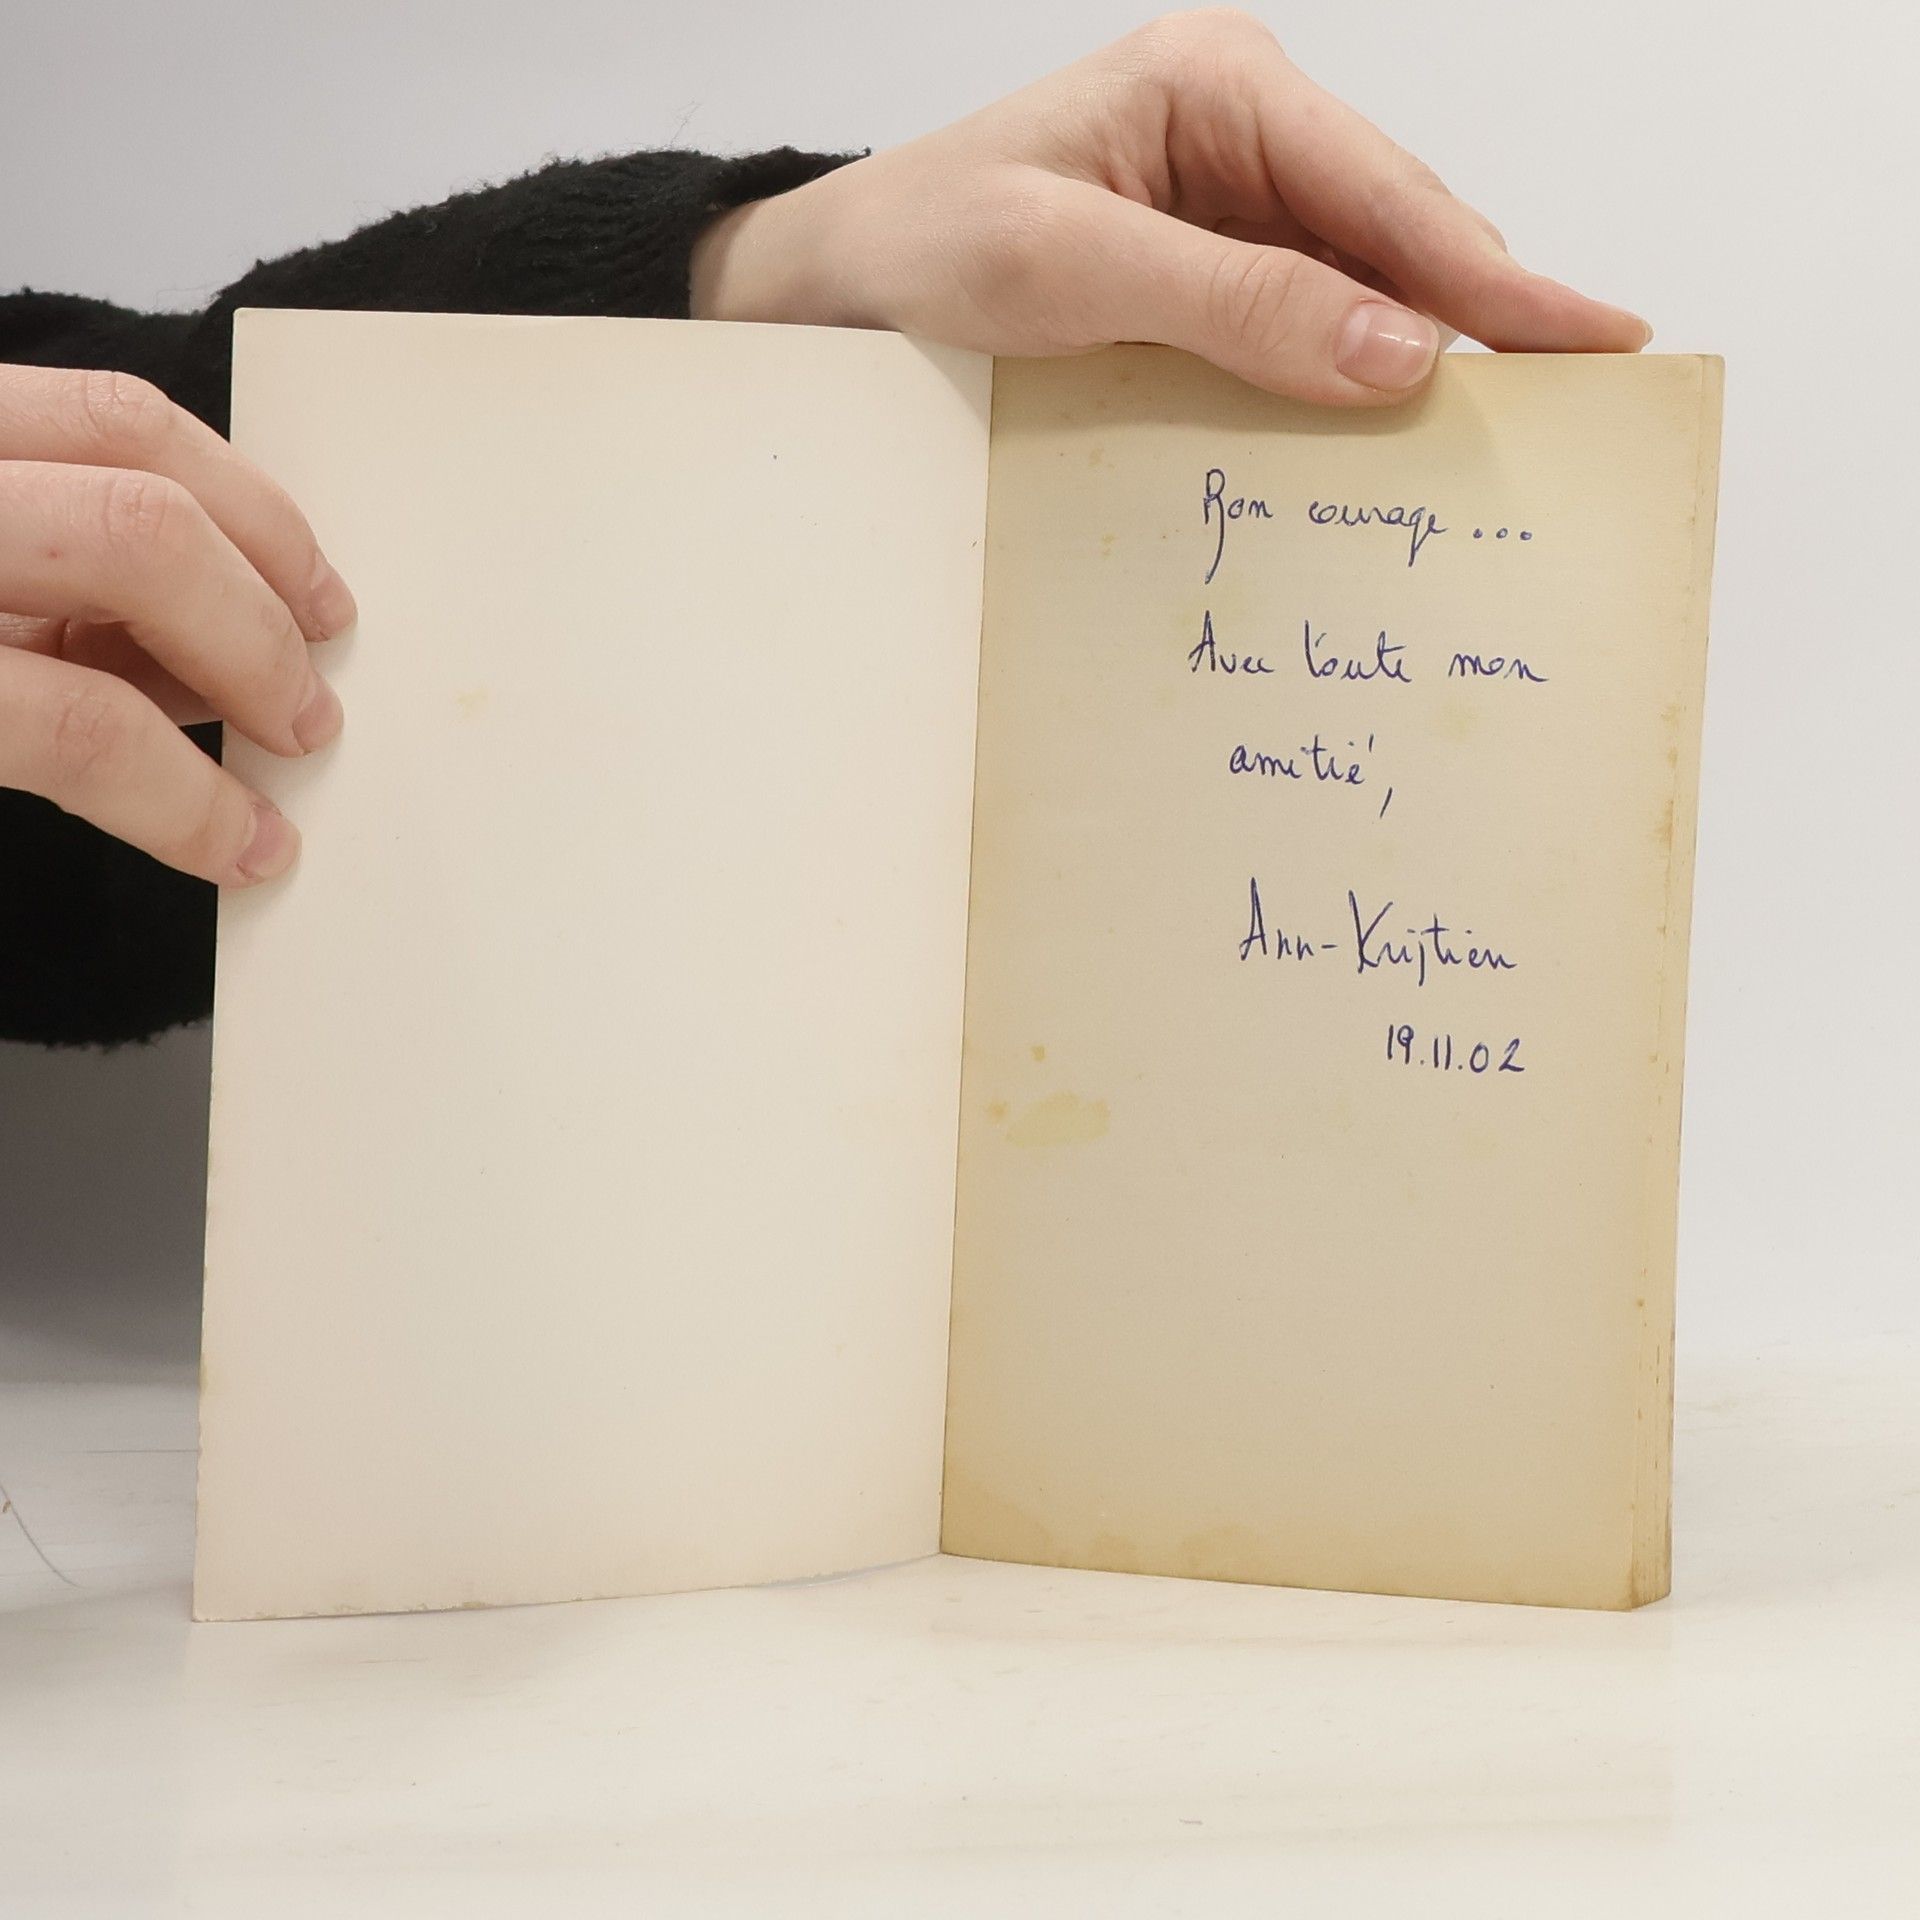 Bon courage ...
Avec toute mon
amitié,
Ann-Kristien
19.11.02